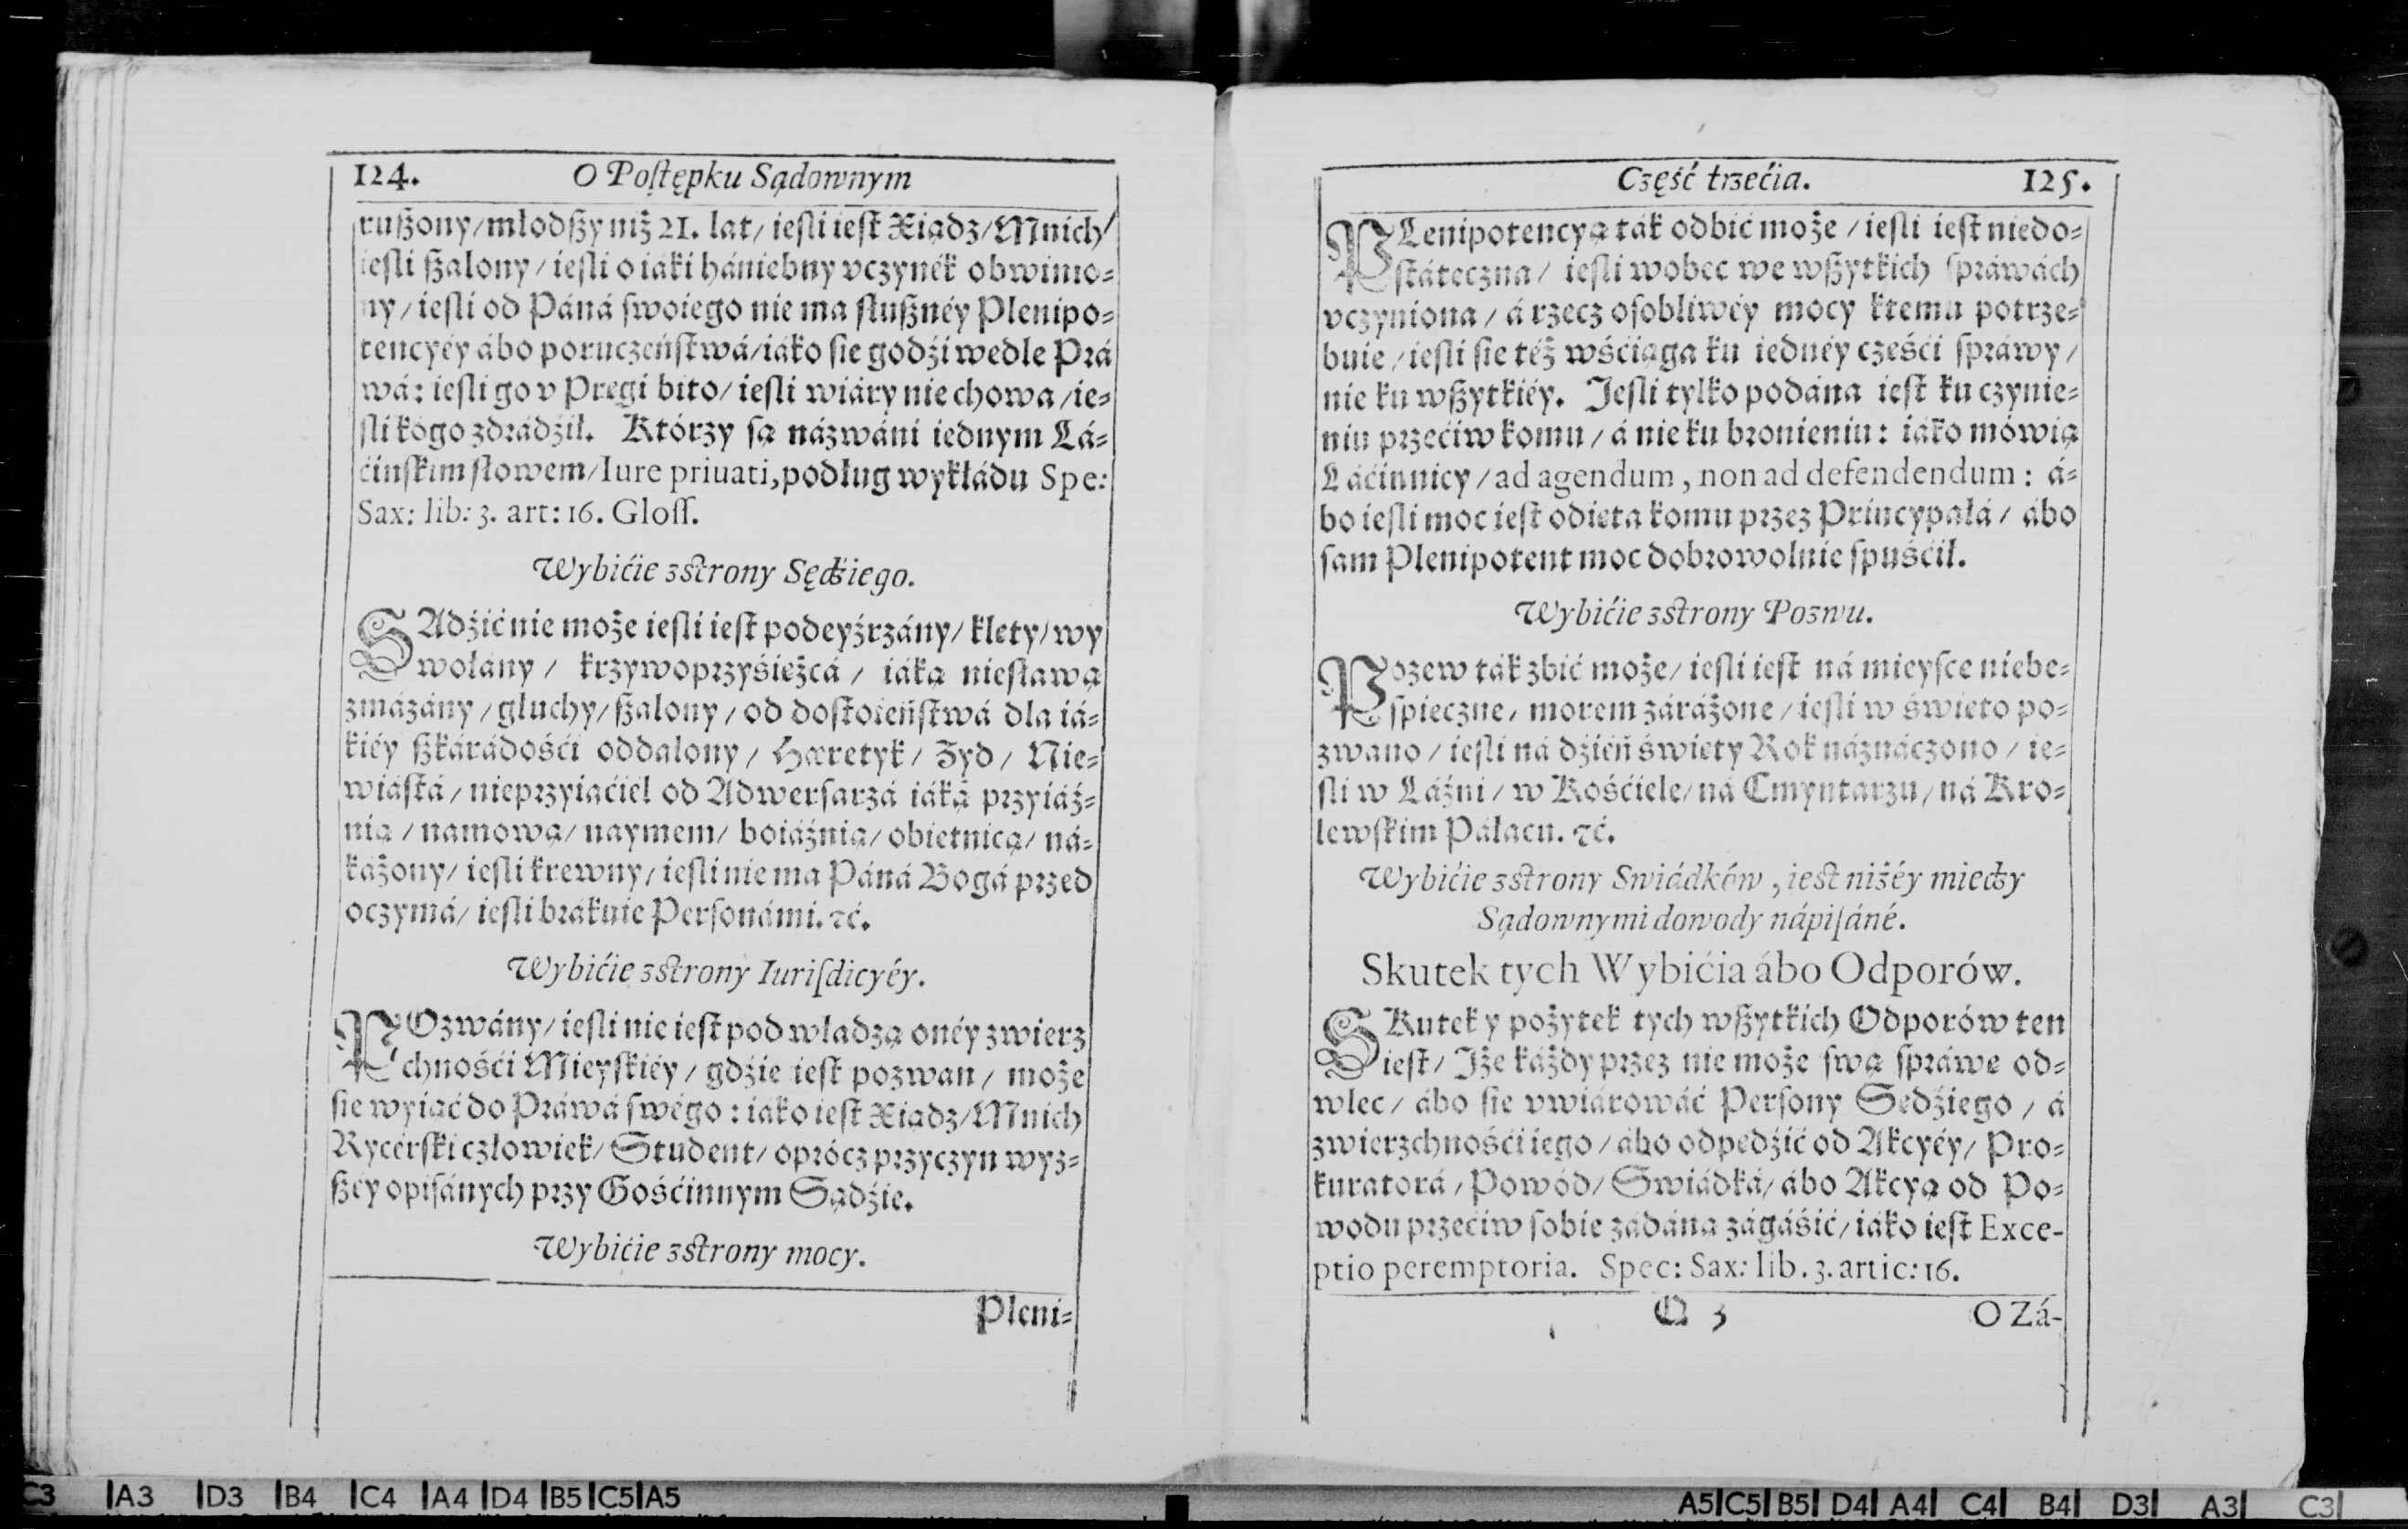 124. O Poſtępku Sądownym
rußony/młodßy niż 21. lat/ ieſli ieſt Xiądz/Mnich/
ieſli ßalony/ ieſli o iáki hániebny vczynék obwinio-
ny/ ieſli od Páná ſwoiego nie ma ſłußnéy Plenipo-
tencyéy ábo poruczeńſtwá/iáko ſie godźi wedle Prá
wá: ieſli go v Pręgi bito/ ieſli wiáry nie chowa/ie-
ſli kógo zdrádźił. Którzy ſą názwáni iednym Łá-
ćińſkim ſłowem/Iure priuati,podług wykłádu Spe:
Sax: lib: 3. art: 16. Gloſſ.
Wybićie zſtrony Sędźiego.
SAdźić nie może ieſli ieſt podeyźrzány/ klęty/ wy
wołány/ krzywoprzyśiężcá/ iáką niesławą
zmázány/ głuchy/ ßalony/ od doſtoieńſtwá dla iá-
kiéy ßkárádośći oddalony/ Hæretyk/ Żyd/ Nie-
wiáſtá/ nieprzyiaćiél od Adwerſarzá iáką przyiáź-
nią/ namową/ naymem/ boiáźnią/ obietnicą/ ná-
káżony/ ieſli krewny/ ieſli nie ma Páná Bogá przed
oczymá/ ieſli brákuie Perſonámi. ꝛć.
Wybićie zſtrony Iuriſdicyéy.
POzwány/ ieſli nie ieſt pod władzą onéy zwierz
chnośći Mieyſkiéy/ gdźie ieſt pozwan/ może
ſie wyiąć do Práwá ſwégo: iáko ieſt Xiądz/Mnich
Rycérſki człowiek/ Student/ oprócz przyczyn wyz-
ßéy opiſánych przy Gośćinnym Sądźie.
Wybićie zſtrony mocy.
Pleni-
Część trzećia. 125.
PLenipotencyą ták odbić może/ ieſli ieſt niedo-
ſtáteczna/ ieſli wobec we wßytkich ſpráwách
vczyniona/ á rzecz oſobliwéy mocy ktemu potrze-
buie/ ieſli ſie téż wśćiąga ku iednéy częśći ſpráwy/
nie ku wßytkiéy. Jeſli tylko podána ieſt ku czynie-
niu przećiw komu/ á nie ku bronieniu: iáko mówią
Láćinnicy/ ad agendum, non ad defendendum: á-
bo ieſli moc ieſt odięta komu przez Principałá/ ábo
ſam Plenipotent moc dobrowolnie ſpuśćił.
Wybićie zſtrony Pozwu.
Pozew ták zbić może/ ieſli ieſt ná mieyſce niebe-
ſpieczne/ morem zárażone/ ieſli w święto po-
zwano/ ieſli ná dźiéń święty Rok náznáczono/ ie-
ſli w Łáźni/ w Kośćiele/ ná Cmyntarzu/ ná Kro-
lewſkim Páłacu. ꝛć.
Wybićie zſtrony Swiádków, ieſt niżéy między
Sądownymi dowody nápiſáné.
Skutek tych Wybićia ábo Odporów.
SKutek y pożytek tych wßytkich Odporów ten
ieſt/ Jże káżdy przez nie może ſwą ſpráwę od-
wlec/ ábo ſie vwiárowáć Perſony Sędźiego/ á
zwierzchnośći iego/ ábo odpędźić od Akcyéy/ Pro-
kuratorá/ Powód/ Swiádká/ ábo Akcyą od Po-
wodu przećiw ſobie zádána zágáśić/ iáko ieſt Exce-
ptio peremptoria. Spec: Sax: lib. 3. artic: 16.
Q 3 O Zá-
C3 A3 D3 B4 C4 A4 D4 B5 C5 A5
A5 C5 B5 D4 A4 C4 B4 D3 A3 C3